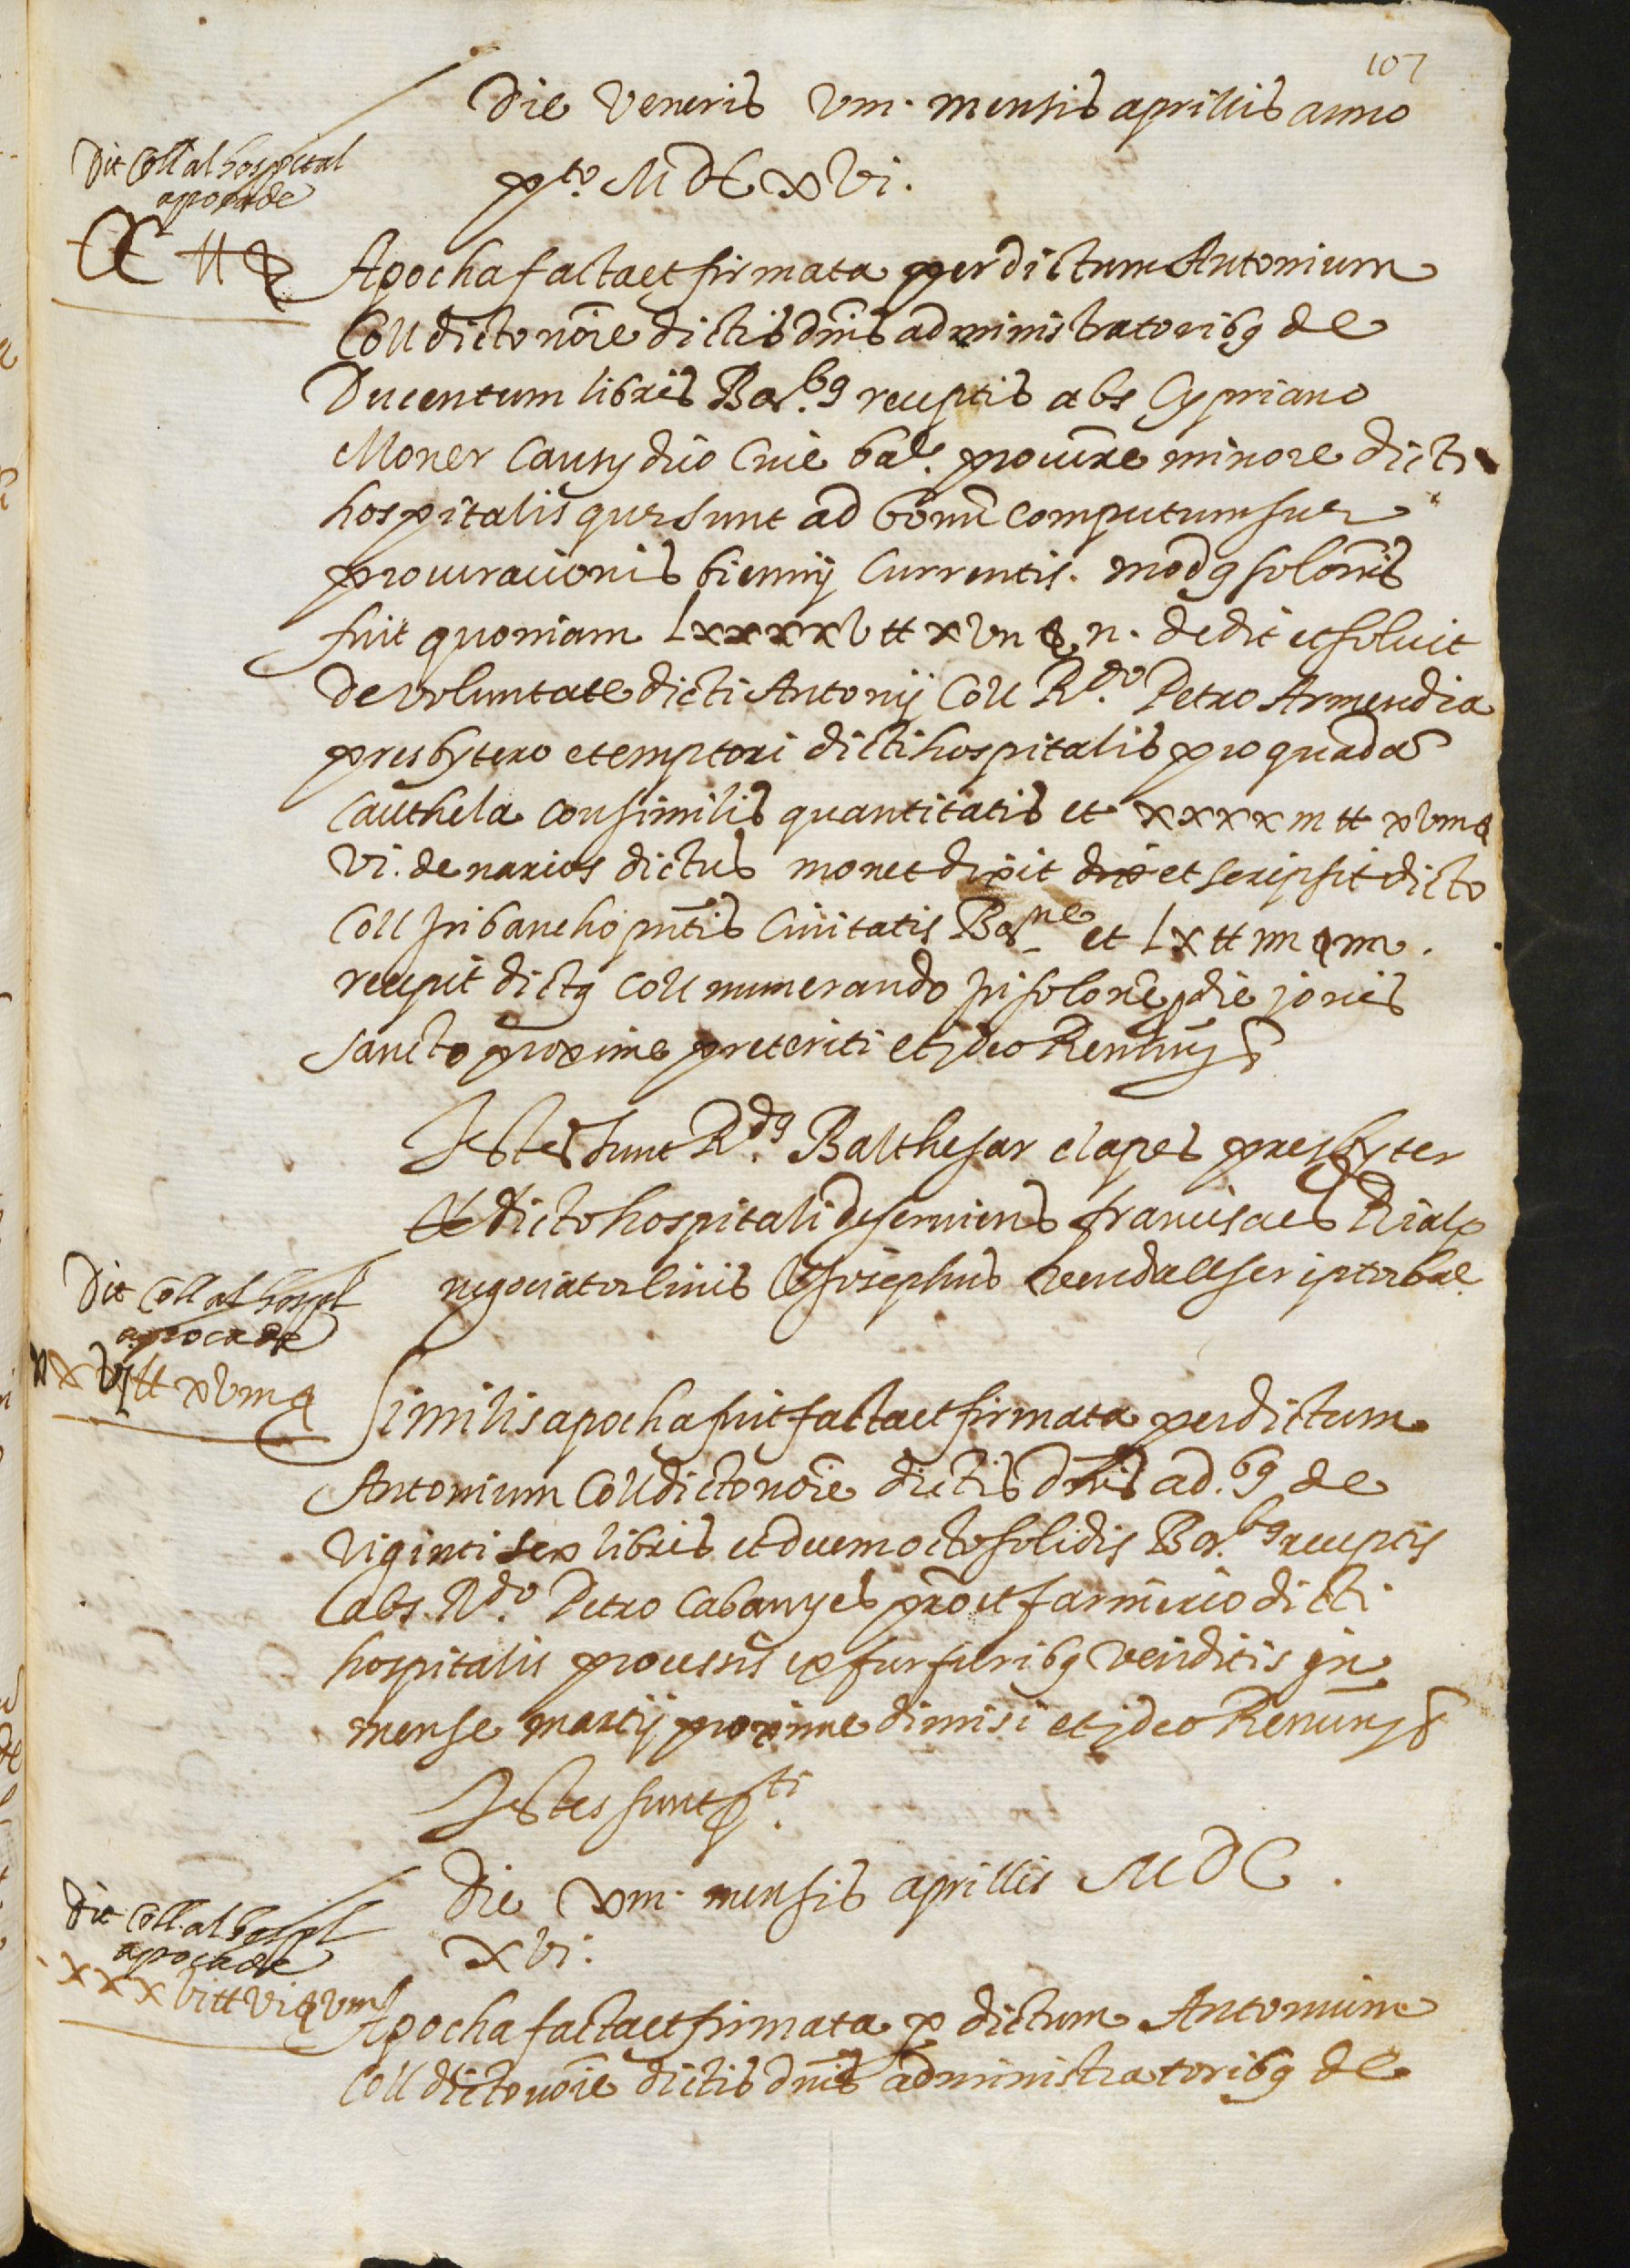 107
Die Veneris viii. mensis aprillis anno
pto. MDCxvi.
Dit Coll al hospital
apoca de
CC ll
Apocha facta et firmata per dictum Antonium
Coll dicto noīe dictis dnīs administratoribq de
Ducentum libris Bar.bq receptis abs Cypriano
Moner Causydico Cive bar. procure minore dicti
hospitalis que sunt ad bonū computum sue
procurationis biennij Currentis. modq solonis
fuit quoniam Lxxxxv ll xvii ß ii. dedit et solvit
de voluntate dicti Antonij Coll Rdo. Petro Armendia
presbytero et emptori dicti hospitalis pro quada
Cauthela consimilis quantitatis et xxxxiii ll xviii ß
vi. denarios dictus moner dixit et scripsit dicto
Coll In bancho pntīs Civitatis Barne et Lx ll iiii ß iiii.
recepit dictq Coll numerando In solone die jovis
sancto proxime preteriti et ideo Renuny
Testes sunt Rdq. Balthesar clapes presbyter
dicto hospitali deserviens franciscus Rialp
negociator linis et Josephus scriptor bar.
Dit Coll al hospl
apoca de
xxvj ll xviii ß
Similis apocha fuit facta et firmata per dictum
Antonium Coll dicto noīe dictis dnīs ad.bq de
viginti sex libris et decem octo solidis Bar.bq receptis
abs Rdo. Petro Cabanyes pro et farinerio dicti
hospitalis processis ex furfuribq venditis in
mense martij proxime dimisi et ideo Renuny
Testes sunt pti.
Dit Coll al hospl
apoca de
xxxvi ll vi ß viii
Die xiii. mensis aprillis MDC.
xvi.
Apocha facta et firmata p dictum Antonium
Coll dicto noīe dictis dnīs administratoribq de